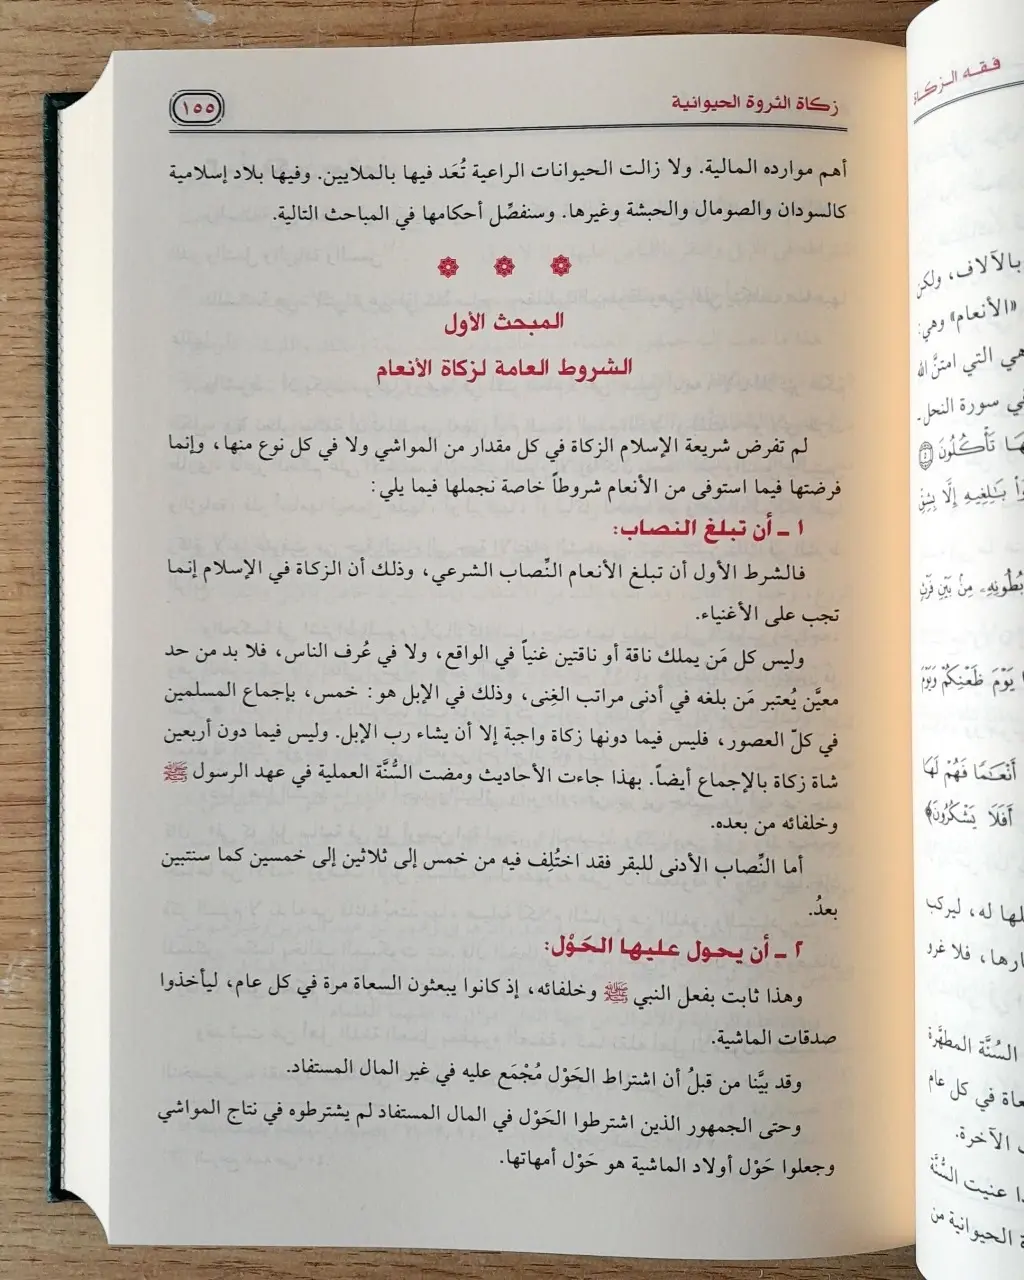 زكاة الثروة الحيوانية
١٥٥
أهم موارده المالية. ولا زالت الحيوانات الراعية تُعَد فيها بالملايين. وفيها بلاد إسلامية
كالسودان والصومال والحبشة وغيرها. وسنفصِّل أحكامها في المباحث التالية.
المبحث الأول
الشروط العامة لزكاة الأنعام
لم تفرض شريعة الإسلام الزكاة في كل مقدار من المواشي ولا في كل نوع منها، وإنما
فرضتها فيما استوفى من الأنعام شروطاً خاصة نجملها فيما يلي:
١ ـ أن تبلغ النصاب:
فالشرط الأول أن تبلغ الأنعام النِّصاب الشرعي، وذلك أن الزكاة في الإسلام إنما
تجب على الأغنياء.
وليس كل مَن يملك ناقة أو ناقتين غنياً في الواقع، ولا في عُرف الناس، فلا بد من حد
معيَّن يُعتبر مَن بلغه في أدنى مراتب الغِنى، وذلك في الإبل هو: خمس، بإجماع المسلمين
في كلّ العصور، فليس فيما دونها زكاة واجبة إلا أن يشاء رب الإبل. وليس فيما دون أربعين
شاة زكاة بالإجماع أيضاً. بهذا جاءت الأحاديث ومضت السُّنَّة العملية في عهد الرسول ﷺ
وخلفائه من بعده.
أما النِّصاب الأدنى للبقر فقد اختُلِف فيه من خمس إلى ثلاثين إلى خمسين كما سنتبين
بعدُ.
٢ ـ أن يحول عليها الحَوْل:
وهذا ثابت بفعل النبي ﷺ وخلفائه، إذ كانوا يبعثون السعاة مرة في كل عام، ليأخذوا
صدقات الماشية.
وقد بيَّنا من قبلُ أن اشتراط الحَوْل مُجْمَع عليه في غير المال المستفاد.
وحتى الجمهور الذين اشترطوا الحَوْل في المال المستفاد لم يشترطوه في نتاج المواشي
وجعلوا حَوْل أولاد الماشية هو حَوْل أمهاتها.
فقه الزكاة
بالآلاف، ولكن
«الأنعام» وهي:
هي التي امتنَّ الله
في سورة النحل ـ
تَأْكُلُونَ
بَٰلِغِيهِ إِلَّا بِشِقِّ
بُطُونِهِۦ مِنۢ بَيْنِ فَرْثٍ
يَوْمَ ظَعْنِكُمْ وَيَوْمَ
أَنْعَٰمًا فَهُمْ لَهَا
أَفَلَا يَشْكُرُونَ﴾
لها له، ليركب
فلا غرو
السُّنَّة المطهَّرة
في كل عام
الآخرة.
عنيت السُّنَّة
الحيوانية من